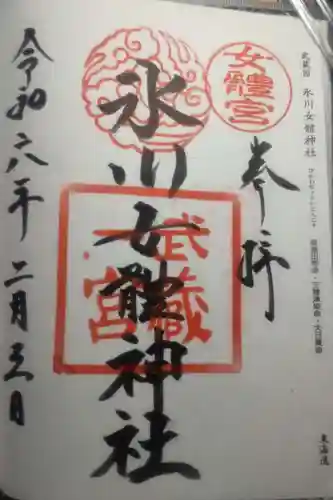 武蔵国 氷川女體神社
東海道
奉拝
女體宮
氷川女體神社
武蔵
一宮
令和六年二月三日